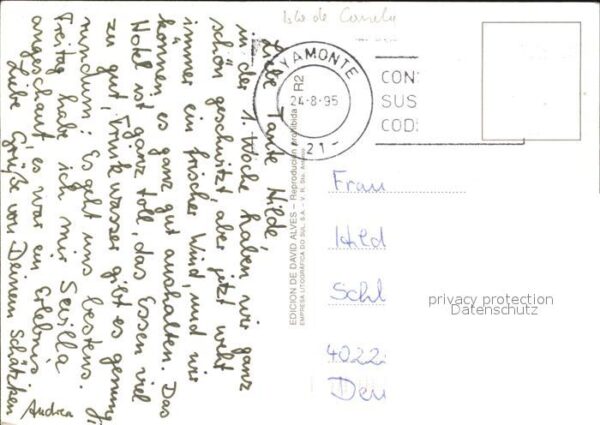 Isla de Canela
Liebe Tante Hilde,
in der 1. Woche haben wir ganz
schön geschwitzt, aber jetzt weht
immer ein frischer Wind, und wir
können es ganz gut aushalten. Das
Hotel ist ganz toll, das Essen viel
zu gut, Trinkwasser gibt es genug
rundum: Es geht uns bestens.
Freitag habe ich mir Sevilla
angeschaut, es war ein Erlebnis
Liebe Grüße von Deinem Schätzken
Andrea
EDICION DE DAVID ALVES – Reproducion prohibida
EMPRESA LITOGRÁFICA DO SUL, S.A. – V. R. Sto. António
R2
AYAMONTE
24-8-95
- 21 -
CON
SUS
COD
Frau
Hild
Schl
privacy protection
Datenschutz
4022
Deu